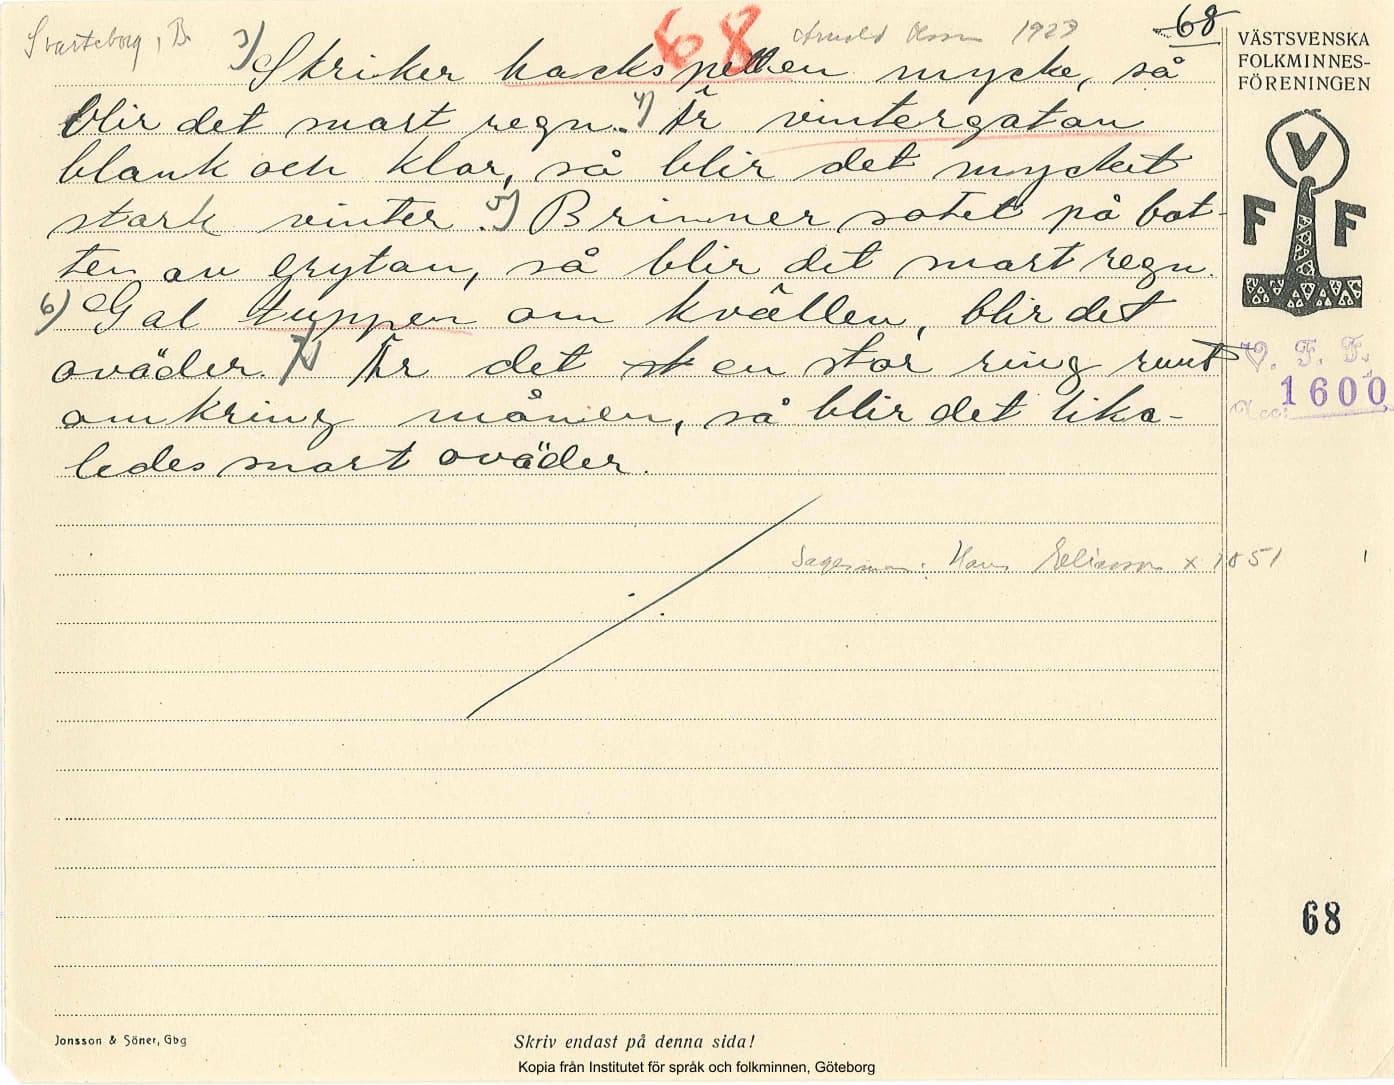 Svarteborg, B.
68
Arnold Olsson 1923
68
VÄSTSVENSKA
FOLKMINNES-
FÖRENINGEN
3) Skriker hackspetten mycke, så
blir det snart regn. 4) Är vintergatan
blank och klar, så blir det mycket
stark vinter. 5) Brinner sotet på bot-
ten av grytan, så blir det snart regn.
6) Gal tuppen om kvällen, blir det
oväder. 7) Är det en stor ring runt
omkring månen, så blir det lika-
ledes snart oväder.
V
F F
V. F. F.
Acc: 1600
Sagesman: Hans Eliasson x 1851
68
Jonsson & Söner, Gbg
Skriv endast på denna sida!
Kopia från Institutet för språk och folkminnen, Göteborg